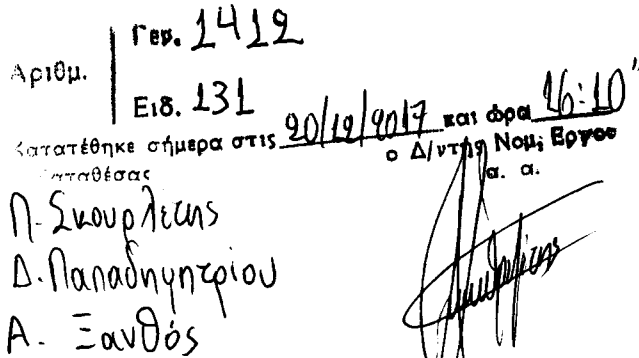 Αριθμ.
Γεν. 1412
Ειδ. 131
Κατατέθηκε σήμερα στις 20/12/2017 και ώρα 16:10'
ο Δ/ντης Νομ; Εργου
καταθέσας
α. α.
Π. Σκουρλετης
Δ. Παπαδημητρίου
Α. Ξανθός